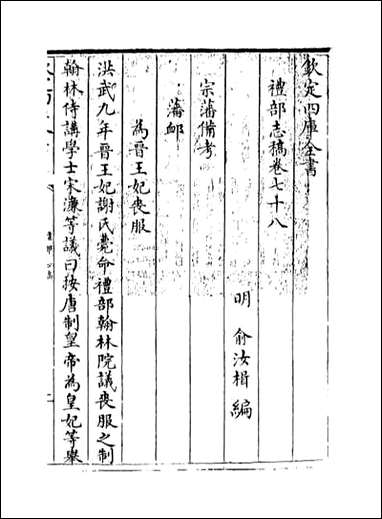 欽定四庫全書
禮部志稿卷七十八
明 俞汝楫 編
宗藩備考
藩䘏
為晉王妃喪服
洪武九年晉王妃謝氏薨命禮部翰林院議喪服之制
翰林侍講學士宋濂等議曰按唐制皇帝為皇妃等舉